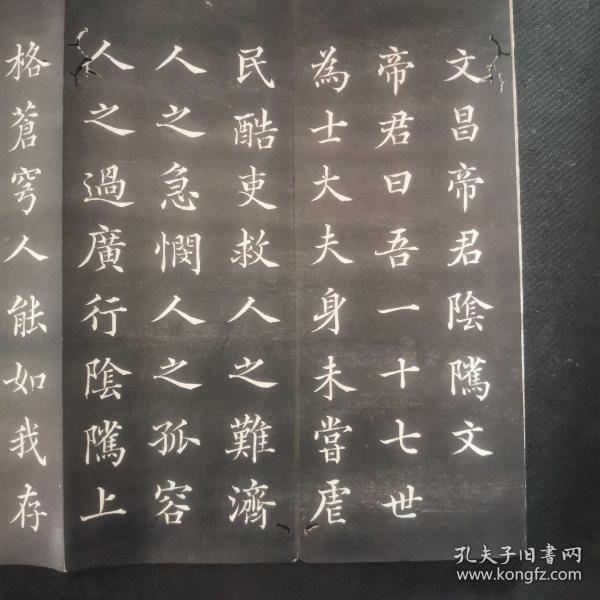 文昌帝君陰騭文
帝君曰吾一十七世
為士大夫身未嘗虐
民酷吏救人之難濟
人之急憫人之孤容
人之過廣行陰騭上
格蒼穹人能如我存
孔夫子旧書网
www.kongfz.com